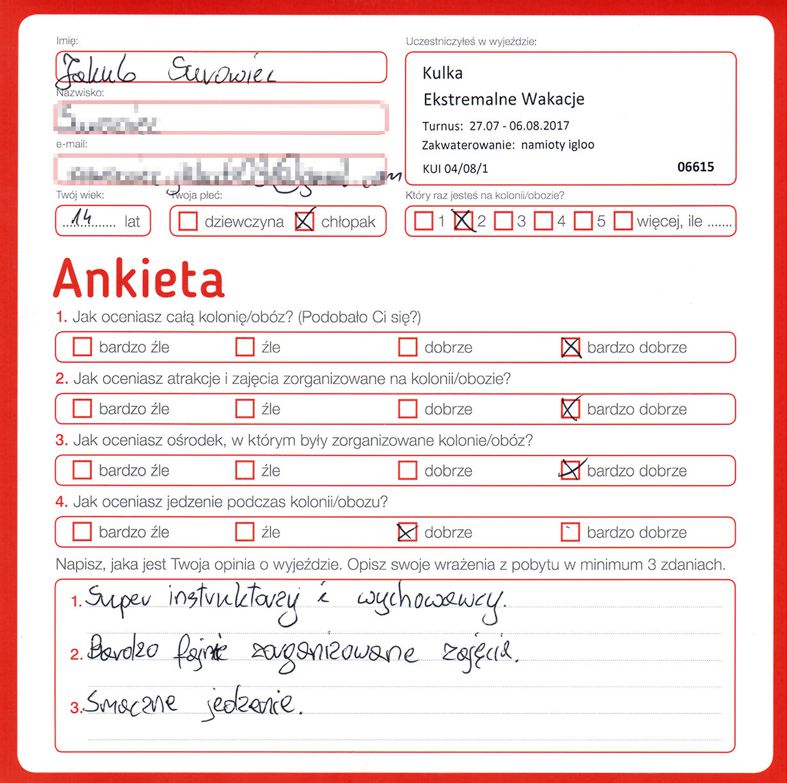 Imię:
Jakub Surowiec
Nazwisko:
e-mail:
Twój wiek:
14 lat
Twoja płeć:
dziewczyna chłopak
Uczestniczyłeś w wyjeździe:
Kulka
Ekstremalne Wakacje
Turnus: 27.07 - 06.08.2017
Zakwaterowanie: namioty igloo
KUI 04/08/1 06615
Który raz jesteś na kolonii/obozie?
1 2 3 4 5 więcej, ile .......
Ankieta
1. Jak oceniasz całą kolonię/obóz? (Podobało Ci się?)
bardzo źle źle dobrze bardzo dobrze
2. Jak oceniasz atrakcje i zajęcia zorganizowane na kolonii/obozie?
bardzo źle źle dobrze bardzo dobrze
3. Jak oceniasz ośrodek, w którym były zorganizowane kolonie/obóz?
bardzo źle źle dobrze bardzo dobrze
4. Jak oceniasz jedzenie podczas kolonii/obozu?
bardzo źle źle dobrze bardzo dobrze
Napisz, jaka jest Twoja opinia o wyjeździe. Opisz swoje wrażenia z pobytu w minimum 3 zdaniach.
1. Super instruktorzy i wychowawcy.
2. Bardzo fajnie zorganizowane zajęcia.
3. Smaczne jedzenie.